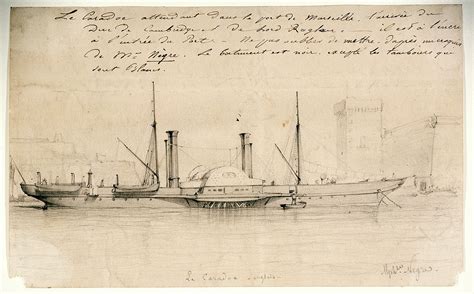 Le Caradoc attendant dans le port de Marseille, l'arrivée du
Duc de Cambridge et de Lord Raglan. il est à l'ancre
à l'entrée du Port. Ne pas oublier de mettre, d'après un croquis
de Mr Nègre. Le batiment est noir, les tambours que
sont blancs.
Le Caradoc
Nègre